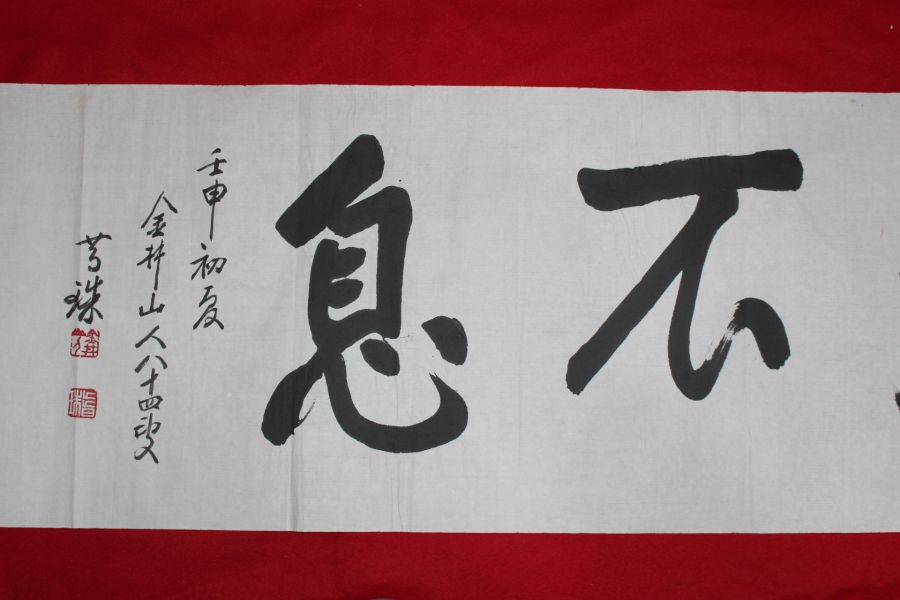 不息
壬申初夏
金井山人八十四叟